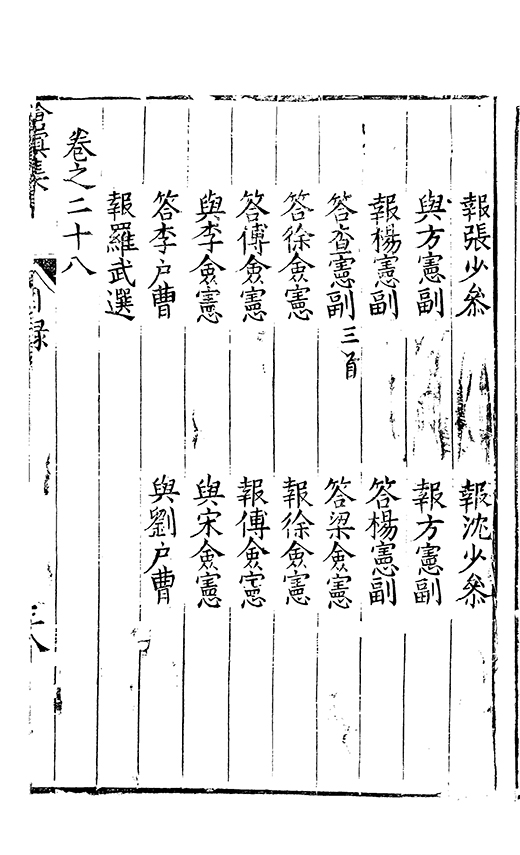 報張少叅 報沈少叅
與方憲副 報方憲副
報楊憲副 答楊憲副
答查憲副三首 答梁僉憲
答徐僉憲 報徐僉憲
答傅僉憲 報傅僉憲
與李僉憲 與宋僉憲
答李户曹 與劉户曹
報羅武選
卷之二十八
滄溟集 目録